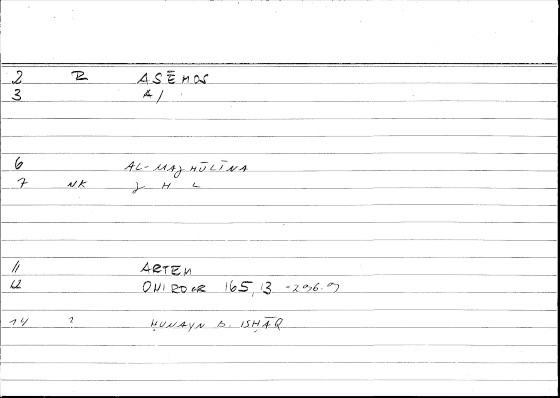 2 R ASĒMOS
3 A/
6 AL-MAJHŪLĪNA
7 NK J H L
11 ARTEM
12 ONIROCR 165,13 -296.9
14 ? ḤUNAYN B. ISḤĀQ